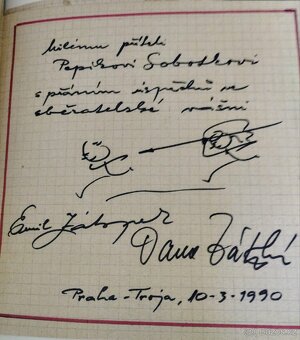 milému příteli
Pepíkovi Sobotkovi
s přáním úspěchů ve
sběratelské vášni
Emil Zátopek
Dana Zátopková
Praha-Troja, 10-3-1990